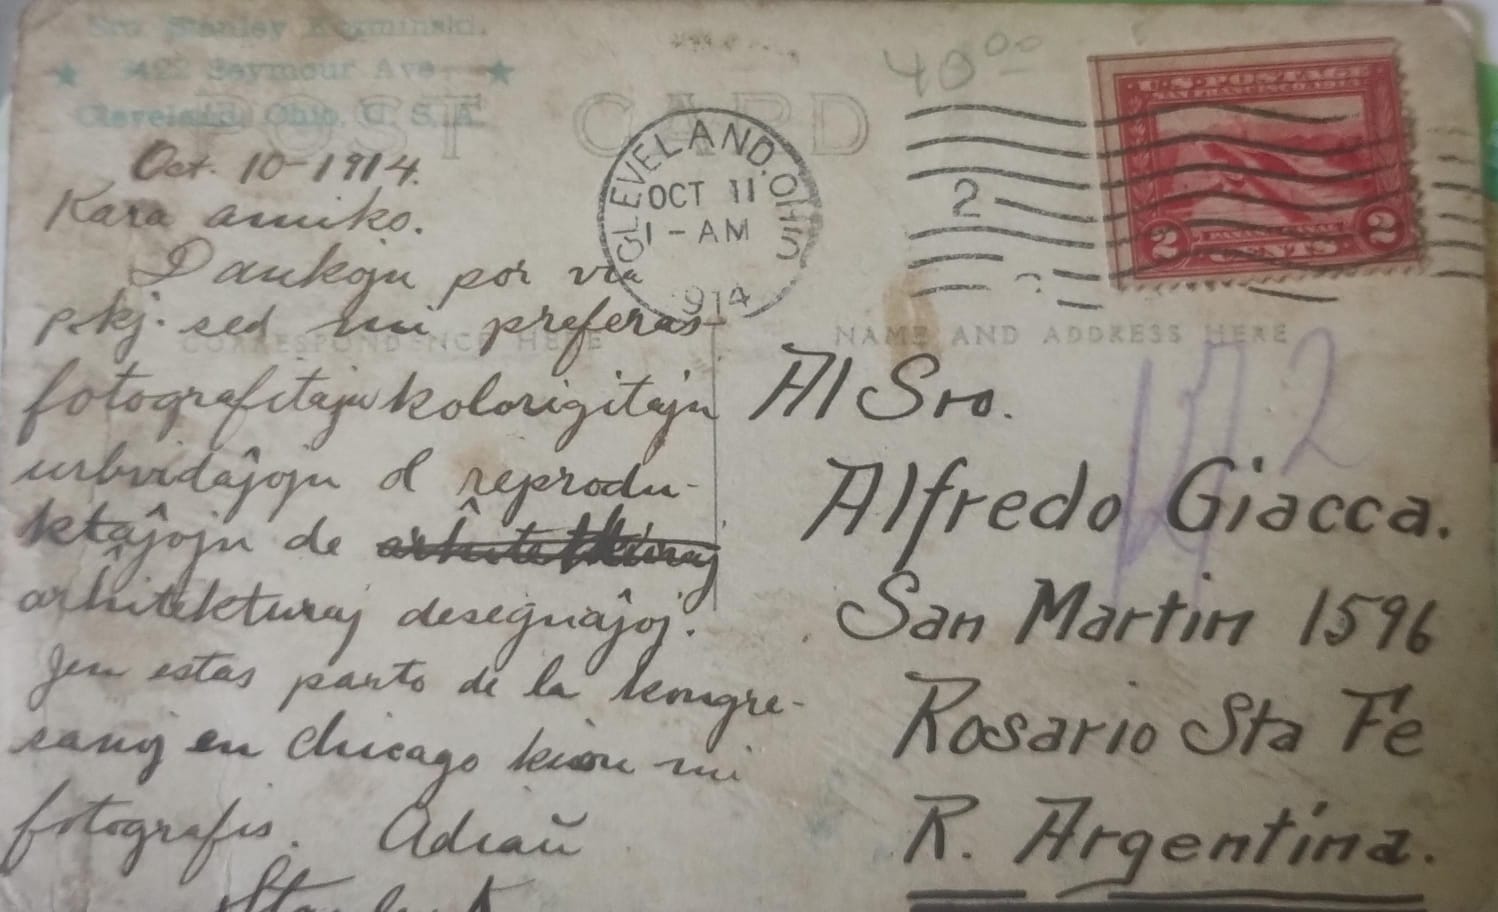 Sro Stanley Kozminski.
★ 3422 Seymour Ave. ★
Cleveland, Ohio, U. S. A.
POST CARD
40⁰⁰
Oct. 10-1914.
Kara amiko.
Dankoju por via
pkj. sed mi preferas
fotografitaju kolorigitaju
urbvidaĵoju & reprodu-
ktaĵoju de
arĥitekturaj desegnaĵoj.
Jen estas parto de la kongre-
sanoj en Chicago kion mi
fotografis. Adiaŭ
CORRESPONDENCE HERE
CLEVELAND, OHIO
OCT 11
1-AM
1914
2
U.S. POSTAGE
SAN FRANCISCO, 1915
2 CENTS 2
NAME AND ADDRESS HERE
172
Al Sro.
Alfredo Giacca.
San Martin 1596
Rosario Sta Fe
R. Argentina.